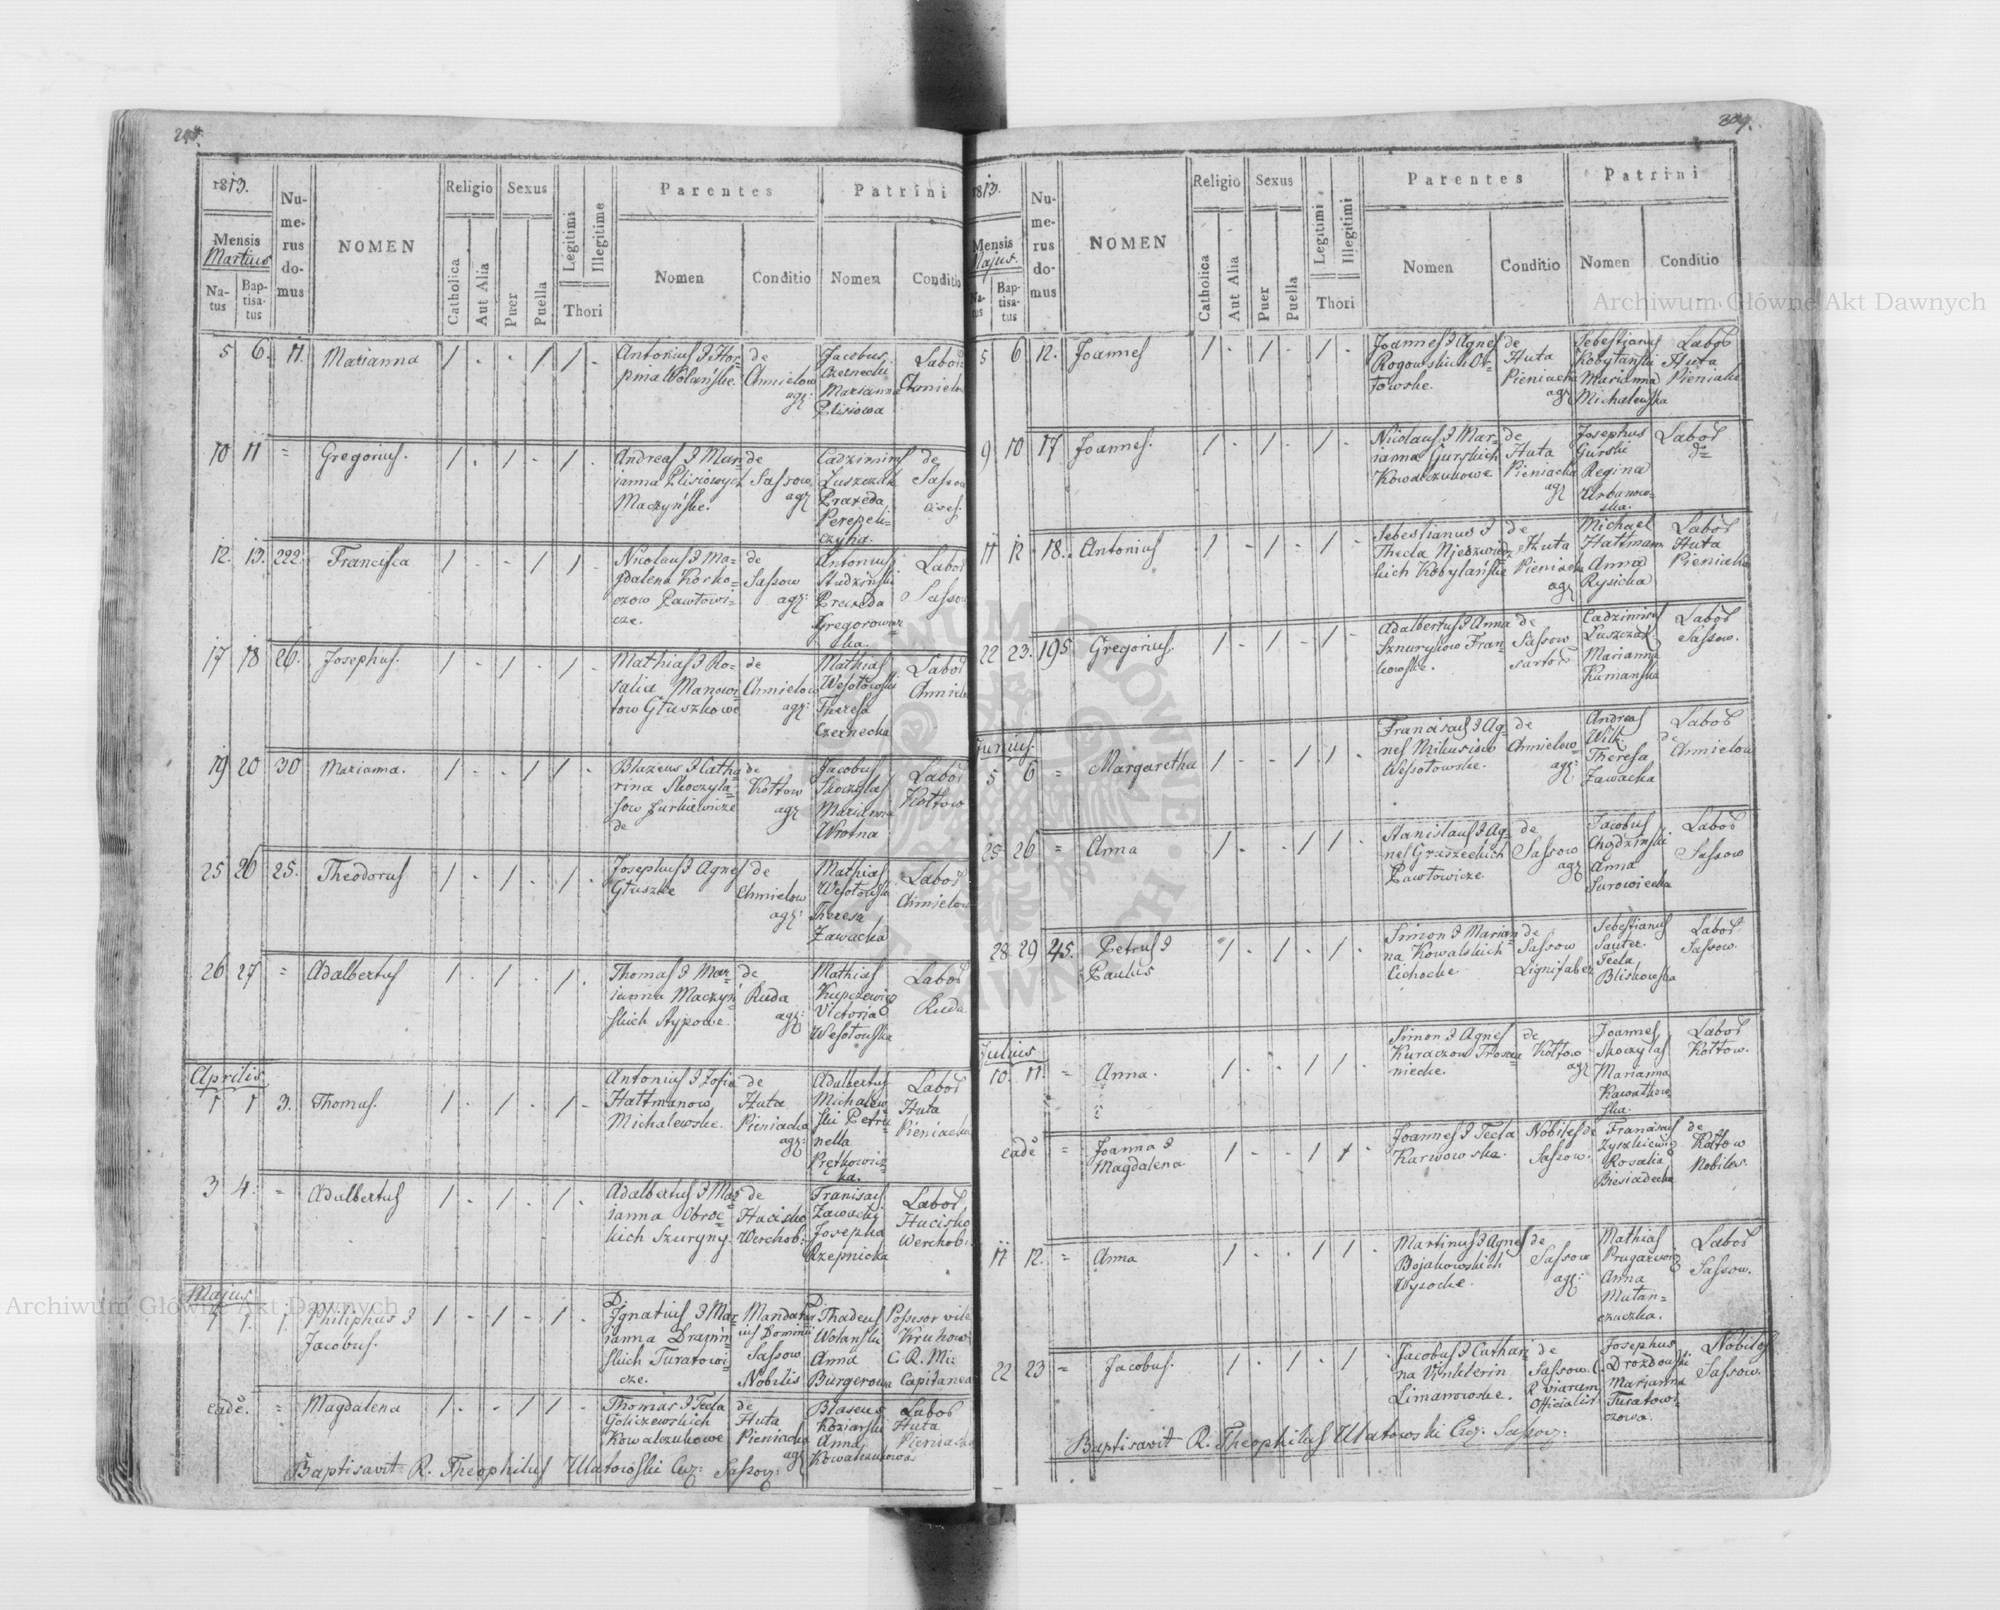 1813.
Mensis
Martius
Na-
tus
Bap-
tisa-
tus
Nu-
me-
rus
do-
mus
NOMEN
Religio
Catholica
Aut Alia
Sexus
Puer
Puella
Legitimi
Illegitime
Thori
Parentes
Nomen
Conditio
Patrini
Nomen
Conditio
5 6. 11. Marianna
Antonius & Hor-
pina Wolańskie.
de
Chmielow
agr:
Jacobus
Czernecki
Marianna
Plisiowa
Labor:
Chmielow
10 11 = Gregorius.
Andreas & Mar-
ianna Plisiowych
Maczyńskie.
de
Sassow
agr
Cadzimirus
Łuszczak
Praxeda
Perepeli-
czyha.
de
Sassow
12. 13. 222. Francisca
Nicolaus & Ma-
gdalena Korko-
czow Pawłowi-
cze.
de
Sassow
agr:
Antonius
Studziński
Praxeda
Gregorowicz-
ka.
Labor
Sassow
17 18 26. Josephus.
Mathias & Ro-
salia
Głuszkowe
de
Chmielow
agr:
Mathias
Wesołowski
Theresa
Czernecka
Labor
Chmielow
19 20 30 Marianna.
Blazeus & Catha-
rina Skoczyla-
sow Żurkiewicze
de
de
Kołtow
agr
Jacobus
Skoczylas
Marianna
Wrotna
Labor
Kołtow
25 26 25. Theodorus
Josephus & Agnes
Głuszke
de
Chmielow
agr:
Mathias
Wesołowski
Theresa
Zawacka
Labor
Chmielow
26 27 = Adalbertus
Thomas & Mar-
ianna Maczyń-
skich Stypowe.
de
Ruda
agr:
Mathias
Kupczewicz
Victoria
Wesołowska
Labor
Ruda
Aprilis
1 1 3. Thomas.
Antonius & Zofia
Hattmanow
Michalewskie.
de
Huta
Pieniacka
agr:
Adalbertus
Michalew-
ski Petro-
nella
Prętkowicz-
ka.
Labor
Huta
Pieniacka
3 4. = Adalbertus
Adalbertus & Mar-
ianna Obroc-
kich Szuryny.
de
Hucisko
Werchob:
Francisus
Zawacki
Josepha
Rzepnicka
Labor
Hucisko
Werchob:
Majus
1 1. 1. Philiphus &
Jacobus.
D.
Ignatius & Mar-
ianna Dramiń-
skich Turatowi-
cze.
Mandatar-
ius Dominii
Sassow
Nobilis
D.
Thadeus
Wolański
Anna
Burgerowa
Possesor vile
Kruhow
C. R. Mi:
Capitanea
eadē. = Magdalena
Thomas & Tecla
Goliczewskich
Kowalczukowe
de
Huta
Pieniacka
agr
Blaseus
Koziarski
Anna
Kowalczukowa
Labor
Huta
Pieniacka
Baptisavit R. Theophilus Ulatowski Coop: Sassov:
1813.
Mensis
Majus.
Na-
tus
Bap-
tisa-
tus
Nu-
me-
rus
do-
mus
NOMEN
Religio
Catholica
Aut Alia
Sexus
Puer
Puella
Legitimi
Illegitimi
Thori
Parentes
Nomen
Conditio
Patrini
Nomen
Conditio
5 6 12. Joannes
Joannes & Agnes
Rogowskich Or-
łowske.
de
Huta
Pieniacka
agr
Sebestianus
Kobylański
Marianna
Michalewska
Labor
Huta
Pieniacka
9 10 17 Joannes.
Nicolaus & Mar-
ianna Gurskich
Kowalczukowe
de
Huta
Pieniacka
agr
Josephus
Gurski
Regina
Urbanow-
ska.
Labor
do
11 12 18. Antonius
Sebestianus &
Thecla Niedzwiedz-
kich Kobylańskie
de
Huta
Pieniacka
agr
Michael
Hattman
Anna
Rysicka
Labor
Huta
Pieniacka
22 23. 195 Gregorius.
Adalbertus & Anna
Sznurykow Fran-
kowske.
de
Sassow
sartor
Cadzimirus
Łuszczak.
Marianna
Kumanska
Labor
Sassow.
Junius.
5 6 = Margaretha
Franciscus & Ag-
nes Mikusiow
Wesołowske.
de
Chmielow
agr:
Andreas
Wilk
Theresa
Zawacka
Labor
de
Chmielow
25 26 = Anna
Stanislaus & Ag-
nes Graszeckich
Pawłowicze
de
Sassow
agr
Jacobus
Chądziński
Anna
Surowiecka
Labor
Sassow
28 29 45. Petrus &
Paulus
Simon & Marian-
na Kowalskich
Cichocke
de
Sassow
Lignifaber
Sebestianus
Sauter.
Tecla
Bliskowska
Labor
Sassow.
Julius
10. 11. = Anna.
Simon & Agnes
Kuraczow
de
Kołtow
agr
Joannes
Skoczylas
Marianna
Kawałkow-
ska.
Labor
Kołtow.
eadē = Joanna &
Magdalena
Joannes & Tecla
Karwowska.
Nobiles de
Sassow.
Francisus
Zyszkiewicz
Rosalia
Biesiadecka
de
Kołtow
Nobiles.
11 12. = Anna
Martinus & Agnes
Bojakowskich
Wysocke.
de
Sassow
agr:
Mathias
Prugarowicz
Anna
Mutan-
czuczka.
Labor
Sassow.
22 23 = Jacobus.
Jacobus & Cathar-
na Vinklerin
Limanowske.
de
Sassow. C.
R. viarum
Officialis.
Josephus
Drozdowski.
Marianna
Turatowi-
czowa.
Nobiles
Sassow.
Baptisavit R. Theophilus Ulatowski Coop: Sassov:
Archiwum Główne Akt Dawnych
Archiwum Główne Akt Dawnych